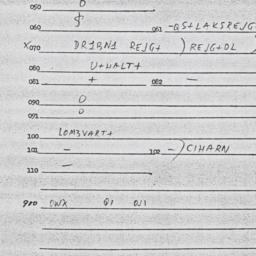 050 0
060 $ 061 -QS+LAKSREJG
X070 DR1BN1 REJG+ )REJG+DL
080 U+HALT+
081 + 082 -
090 0
091 0
100 LOM3VART+
101 - 102 -)CIHARN
110 -
980 OWX Q1 OJ1